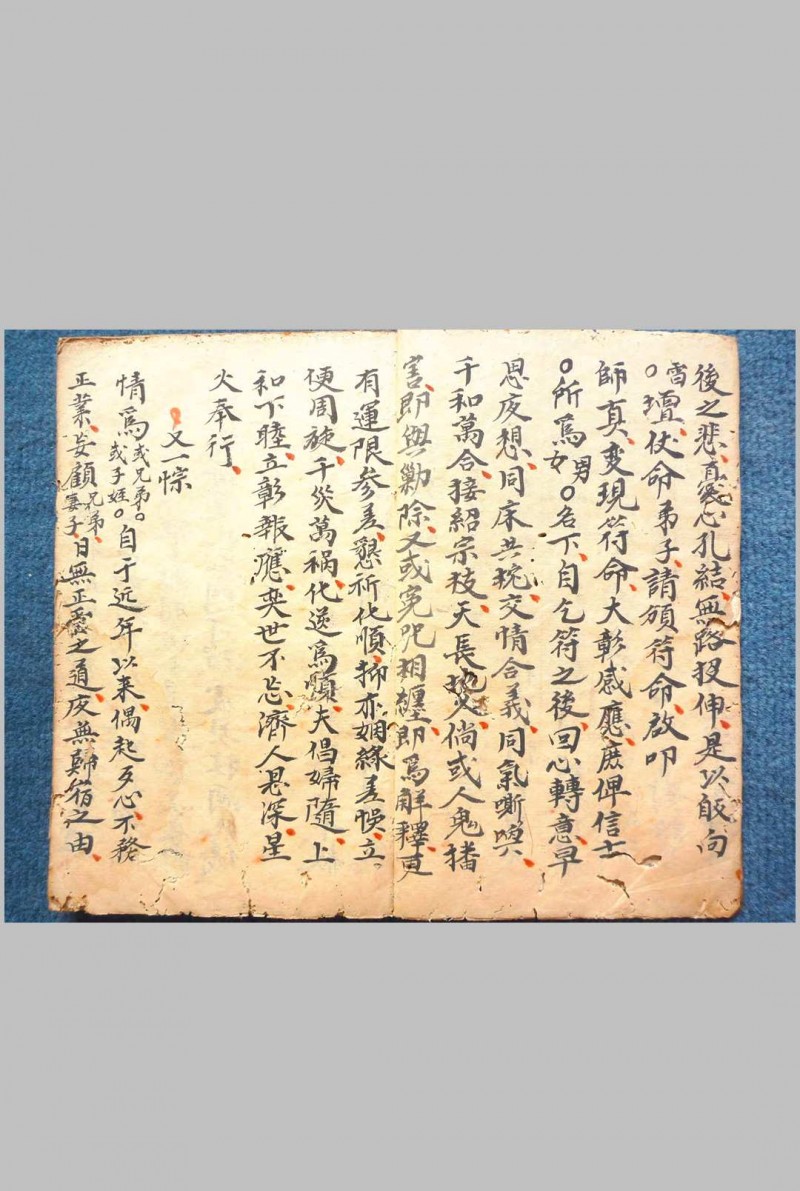 後之悲、哀心孔結、無路投伸、是以皈向
雪○壇、伏命弟子、請頒符命、啟叩
師真、变現符命、大彰感應、庶俾信士
○所爲男女○名下、自乞符之後、回心轉意、早
思夜想、同床共枕、交情合義、同氣
千和萬合、接紹宗枝、天長地久、倘或人鬼播
害、即與勦除、又或冤咒相纏、即爲解釋、更
有運限参差、懇祈化順、抑亦姻緣差悞、立
便周旋、千災萬禍、化逆爲順、夫倡婦隨、上
和下睦、立彰報應、奕世不忘、濟人恩深、星
火奉行、
又一悰
情爲或兄弟○或子姪○自于近年以来、偶起歹心、不務
正業、妄顧兄弟妻子、日無正之道、夜無歸宿之由、